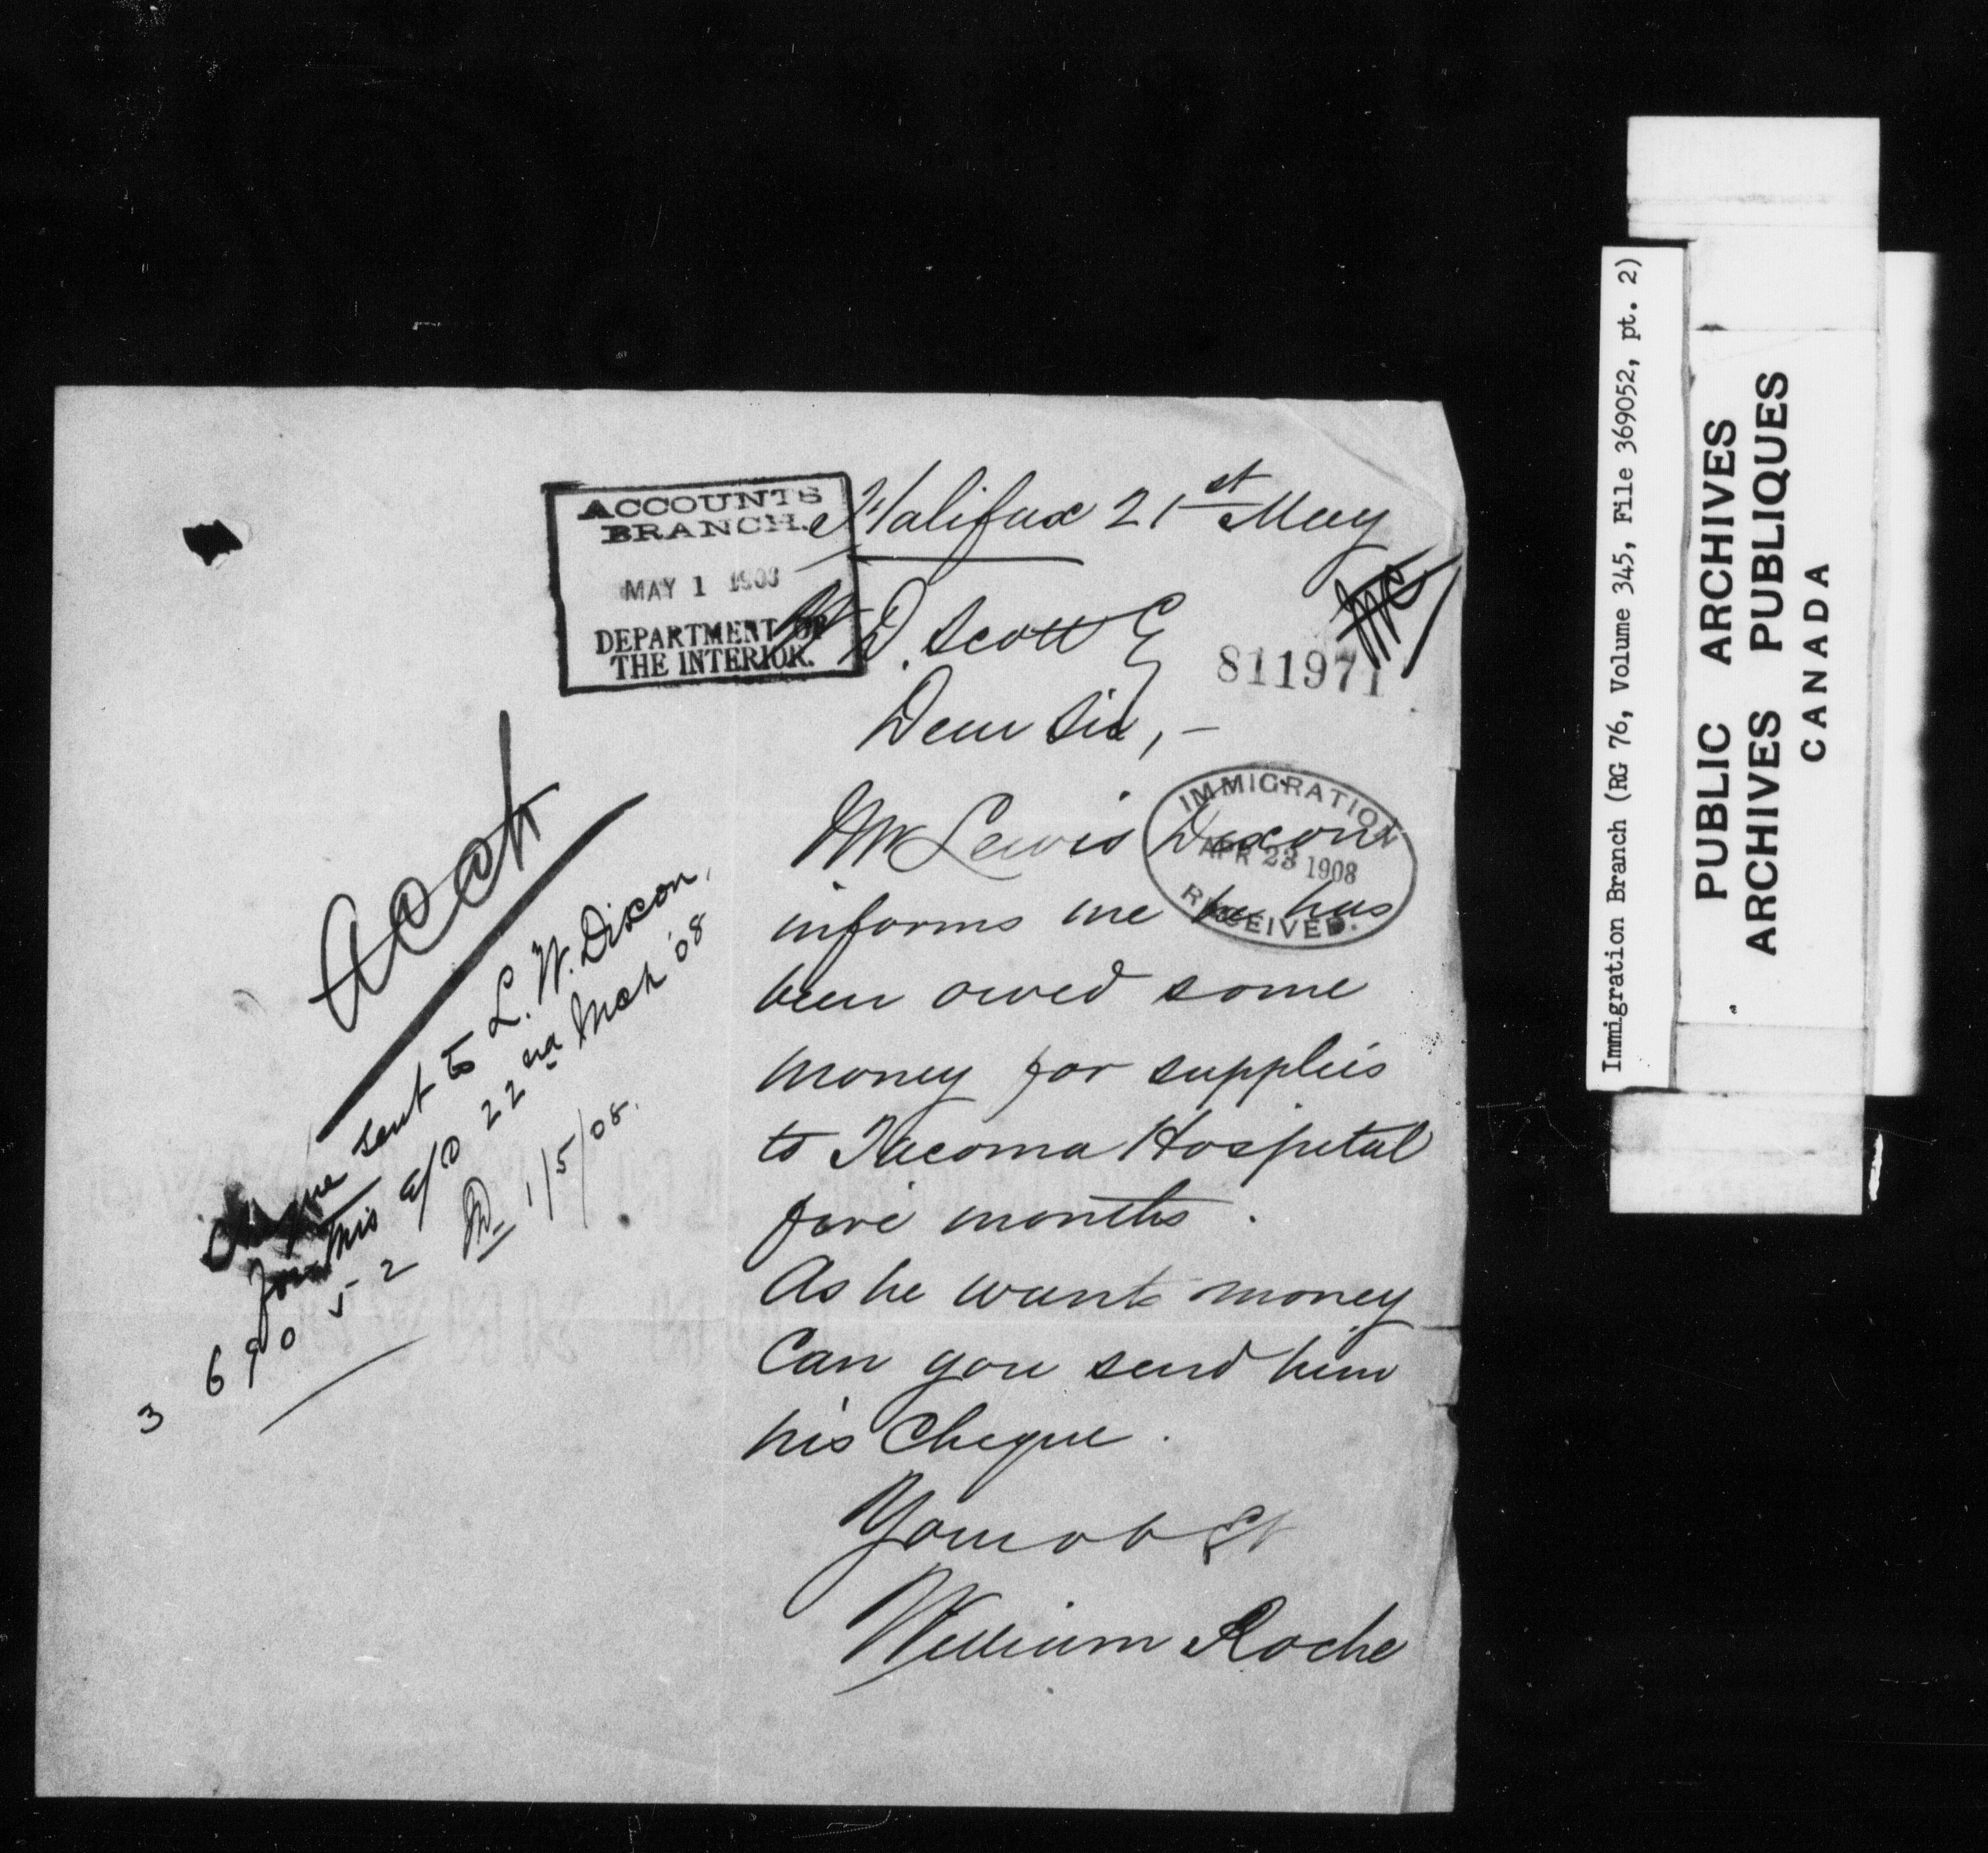 ACCOUNTS
BRANCH.
MAY 1 1908
DEPARTMENT OF
THE INTERIOR.
Halifax 21st May
W D. Scott E
811971
Dear Sir, -
IMMIGRATION
APR 23 1908
RECEIVED.
Mr Lewis Dixon
informs me he has
been owed some
money for supplies
to Tacoma Hospital
five months.
As he wants money
Can you send him
his Cheque.
Your obt
William Roche
Acct
Cheque sent to L. W. Dixon,
for this a/c 22nd Mch '08
1/5/08.
369052
Immigration Branch (RG 76, Volume 345, File 369052, pt. 2)
PUBLIC ARCHIVES
ARCHIVES PUBLIQUES
CANADA